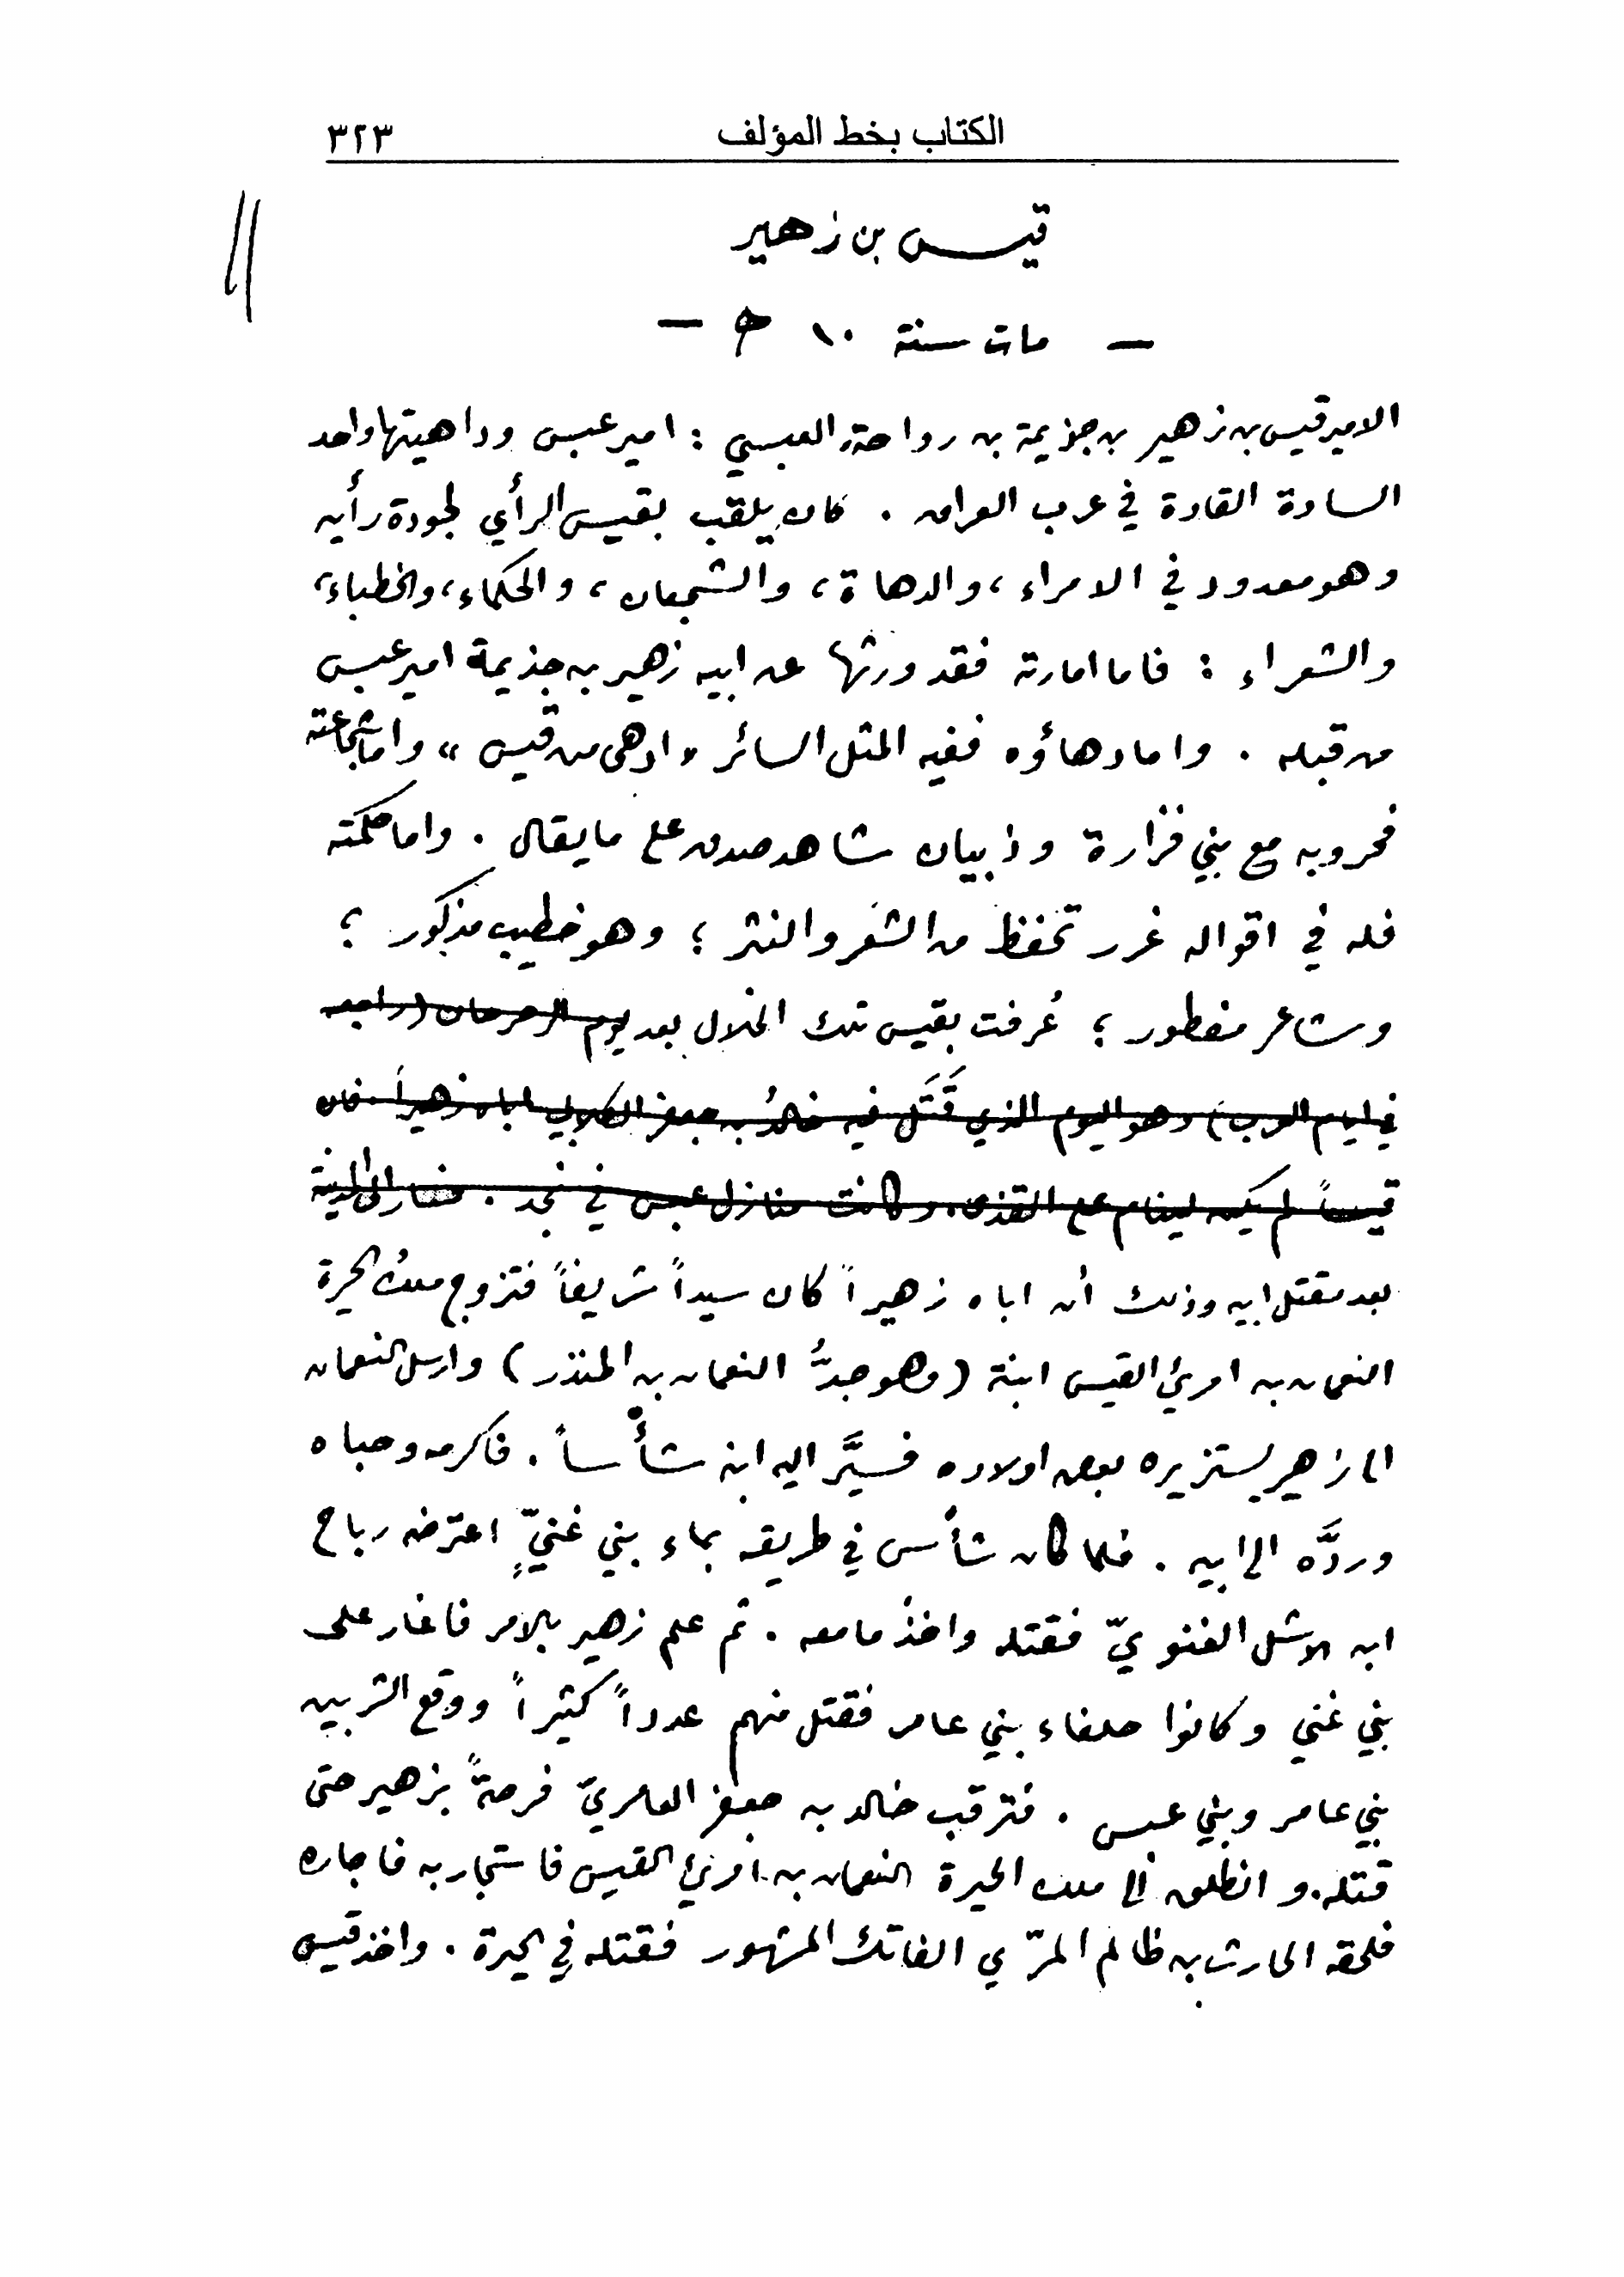 الكتاب بخط المؤلف ٣٢٣
قيس بن زهير
— مات سنة ١٠ هـ —
الامير قيس بن زهير بن جذيمة بن رواحة العبسي : امير عبس وداهيتها واحد
السادة القادة في عرب العراق . كان يلقب بقيس الرأي لجودة رأيه
وهو معدود في الامراء ، والدهاة ، والشجعان ، والحكماء ، والخطباء ،
والشعراء : فاما امارته فقد ورثها عن ابيه زهير بن جذيمة امير عبس
من قبله . واما دهاؤه ففيه المثل السائر « ادهى من قيس » واما شجاعته
فحروبه مع بني فزارة وذبيان شاهد صدق على ما يقال . واما حكمته
فله في اقواله غرر تحفظ من الشعر والنثر ؛ وهو خطيب مذكور ؛
وشاعر مفطور ؛ عُرفت بقيس تلك الخلال بعد يوم الرحرحان ( راجعه
في ايام العرب ) وهو اليوم الذي قَتَل فيه خالدُ بن جعفر الكلابي اباه زهيراً . فان
قيساً لم يكن لينام على القذى . وكانت منازل عبس في نجد . فسار الى المدينة
بعد مقتل ابيه وذلك أن اباه زهيراً كان سيداً شريفاً فتزوج ملك الحيرة
النعمان بن امرئ القيس ابنة ( وهو جدُّ النعمان بن المنذر ) وارسل النعمان
الى زهير يستزيره بعض اولاده فسيَّر اليه ابنه شأساً . فاكرمه وحباه
وردَّه الى ابيه . فلما كان شأس في طريقه بماء بني غنيّ اعترضه رباح
ابن الاشل الغنويّ فقتله واخذ ما معه . ثم علم زهير بالامر فاغار على
بني غني وكانوا حلفاء بني عامر فقتل منهم عدداً كثيراً ووقع الشر بين
بني عامر وبني عبس . فترقب خالد بن جعفر العامريّ فرصةً بزهير حتى
قتله . و انطلق الى ملك الحيرة النعمان بن امرئ القيس فاستجار به فاجاره
فلحقه الحارث بن ظالم المرّي الفاتك المشهور فقتله في الحيرة . واخذ قيس